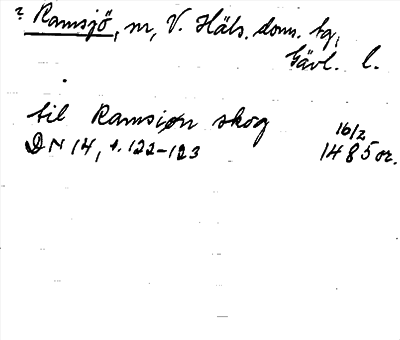 ? Ramsjö, m, V. Häls. doms. tg,
Gävl. l.
til Ramsiøn skog
16/2
DN 14, s. 122-123 1485 or.